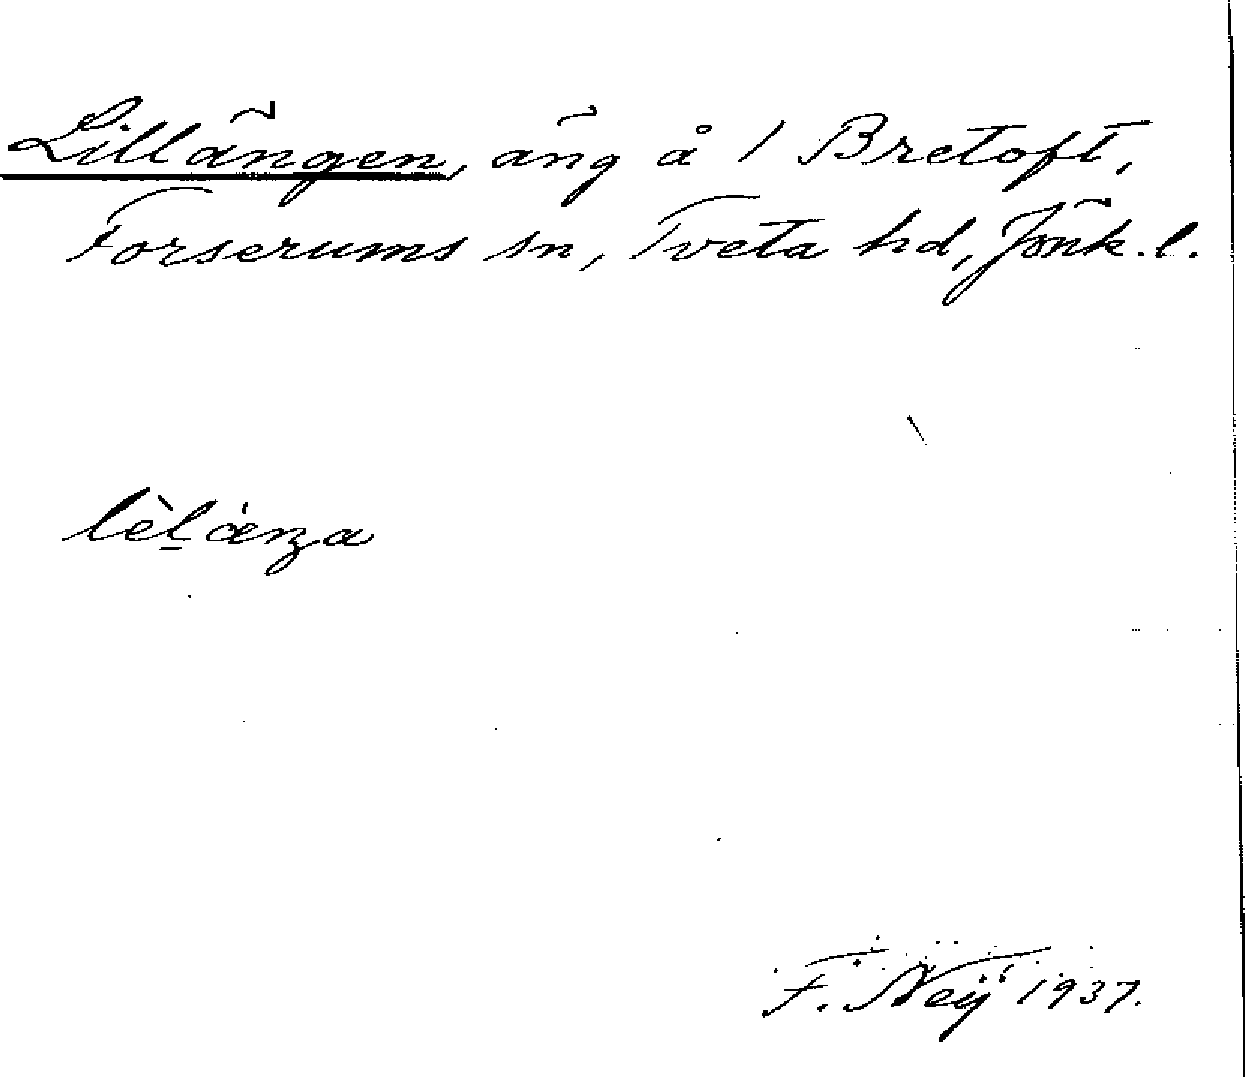 Lillängen, äng å 1 Bretoft,
Forserums sn, Tveta hd, Jönk. l.
lèl̠áŋa
F. Neij 1937.